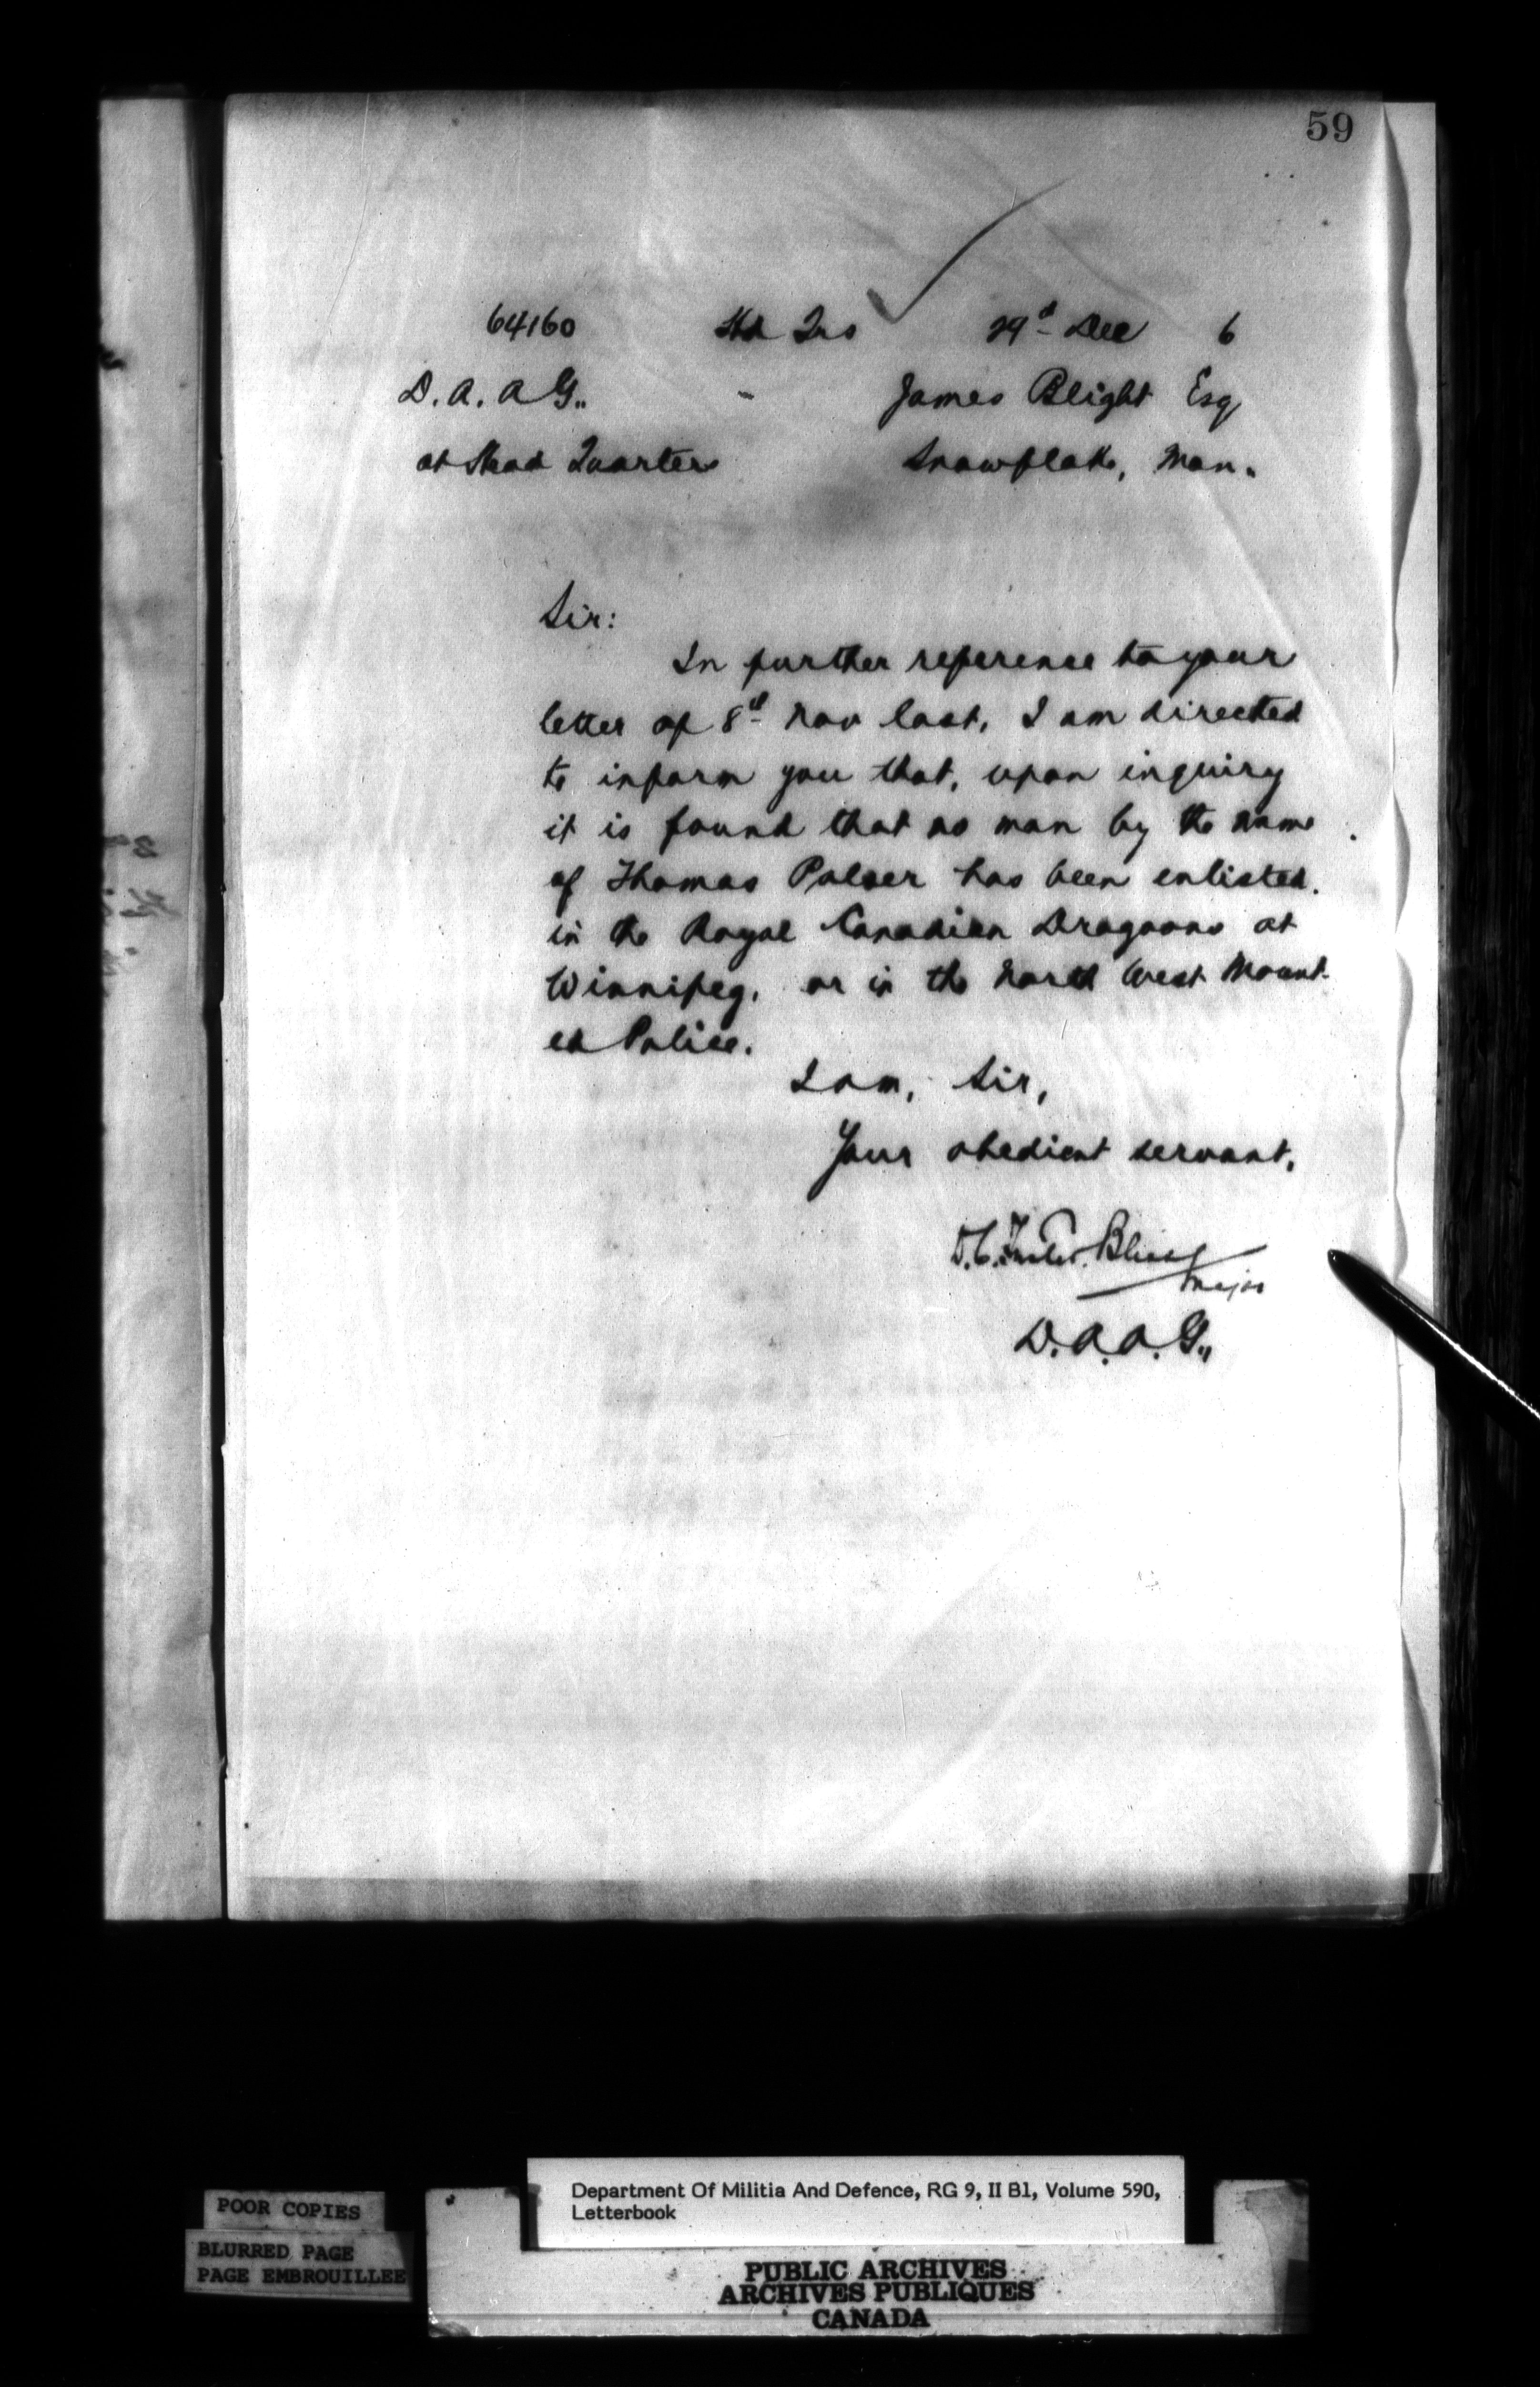 59
64160 Hd Qrs 29th Dec 6
D. A. A G., James Blight Esq
at Head Quarters Snowflake, Man.
Sir:
In further reference to your
letter of 8th Nov last, I am directed
to inform you that, upon inquiry
it is found that no man by the name
of Thomas has been enlisted.
in the Royal Canadian Dragoons at
Winnipeg, or in the North West Mount-
ed Police.
I am, Sir,
Your obedient servant,
D. C. Forster Bliss
Major
D. A. A. G.,
Department Of Militia And Defence, RG 9, II B1, Volume 590,
Letterbook
POOR COPIES
BLURRED PAGE
PAGE EMBROUILLEE
PUBLIC ARCHIVES
ARCHIVES PUBLIQUES
CANADA